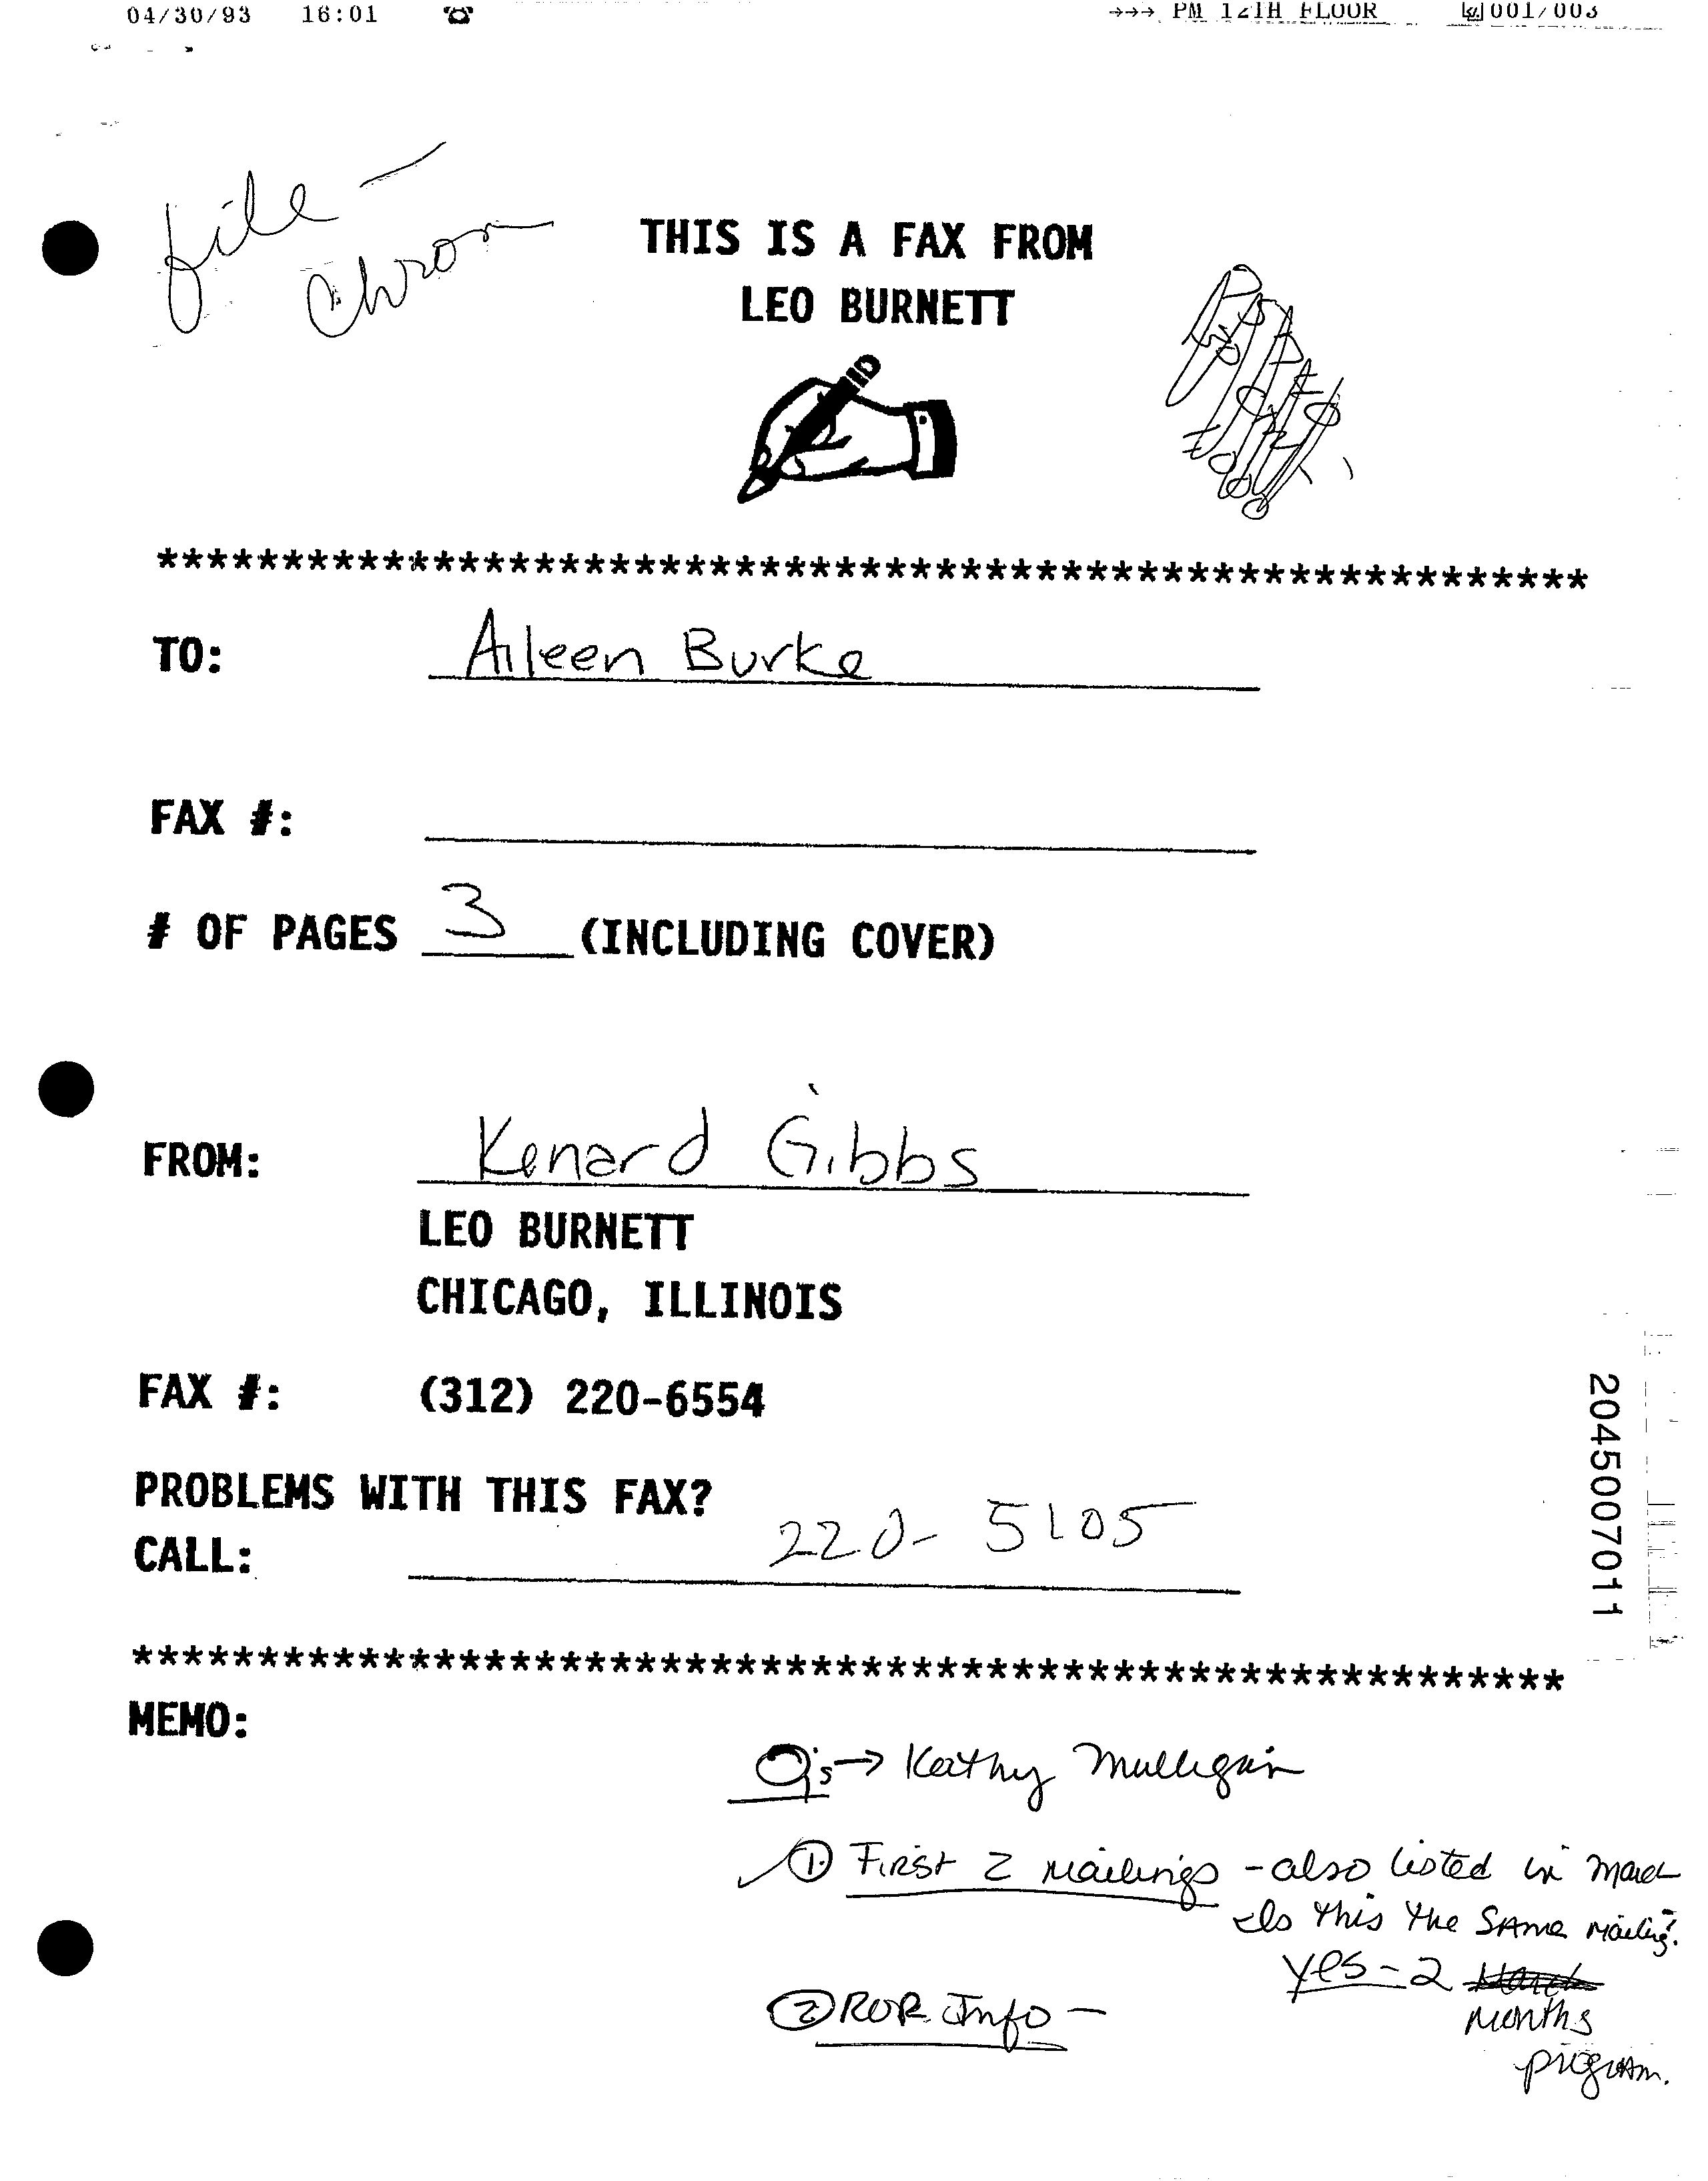 04/30/93 16:01 ☎ →→→ PM 12TH FLOOR 001/003
file -
Chron
THIS IS A FAX FROM
LEO BURNETT
*********************************************************
TO: Aileen Burke
FAX #:
# OF PAGES 3 (INCLUDING COVER)
FROM: Kenard Gibbs
LEO BURNETT
CHICAGO, ILLINOIS
FAX #: (312) 220-6554
PROBLEMS WITH THIS FAX?
CALL: 220-5105
2045007011
*********************************************************
MEMO:
Q's → Kathy Mulligan
✓ ① First 2 mailings - also listed in March
Is this the same mailing?
yes - 2
months
program.
② ROR Info -